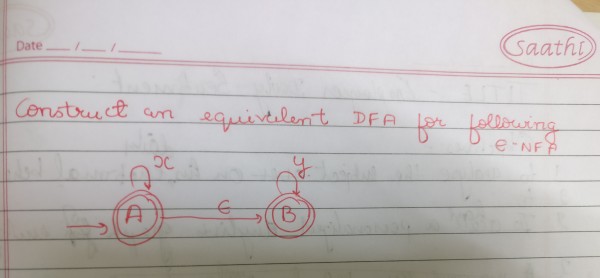 Date ___/___/___
Saathi
Construct an equivalent DFA for following
ε-NFA
x
y
A
ε
B